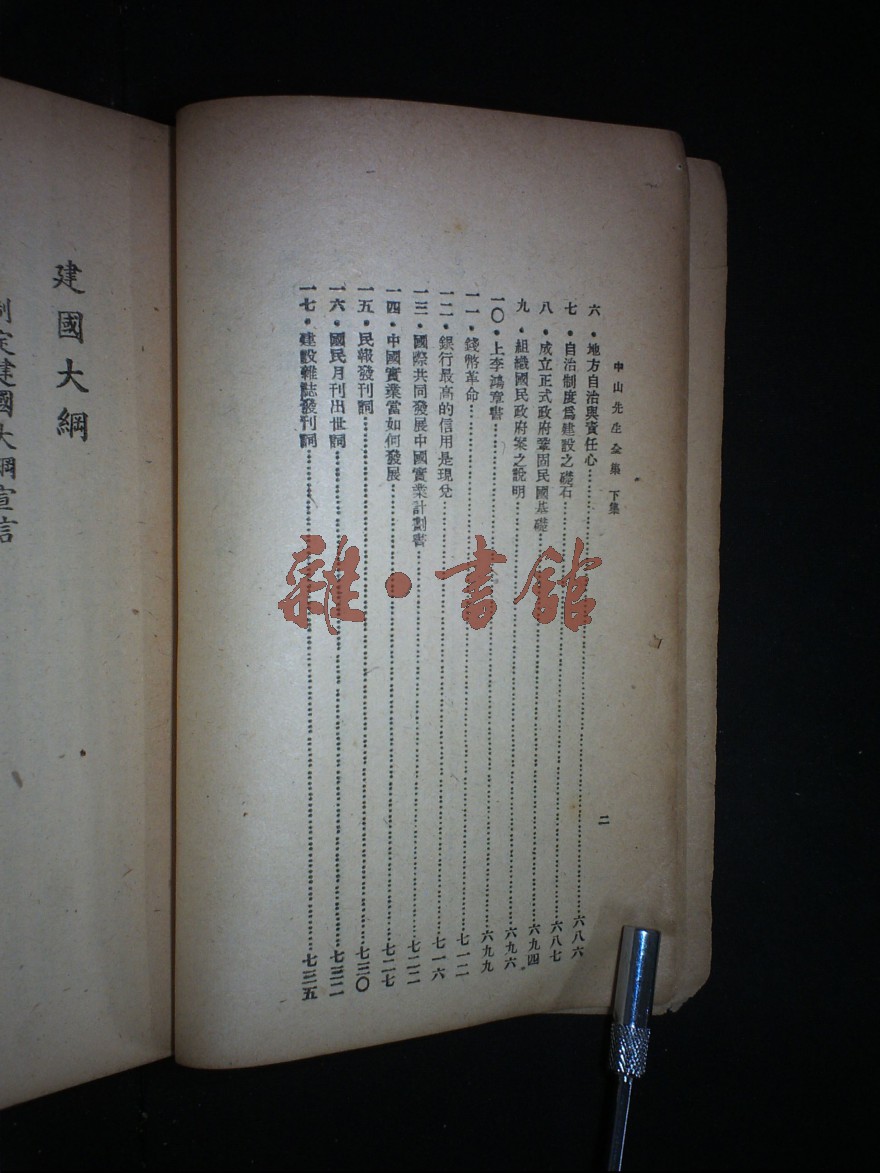 中山先生全集 下集
二
六·地方自治與責任心……六八六
七·自治制度爲建設之礎石……六八七
八·成立正式政府鞏固民國基礎……六九四
九·組織國民政府案之說明……六九六
一〇·上李鴻章書……六九九
一一·錢幣革命……七一二
一二·銀行最高的信用是現兌……七一六
一三·國際共同發展中國實業計劃書……七二二
一四·中國實業當如何發展……七二七
一五·民報發刊詞……七三〇
一六·國民月刊出世詞……七三二
一七·建設雜誌發刊詞……七三五
建國大綱
制定建國大綱宣言
雜·書館